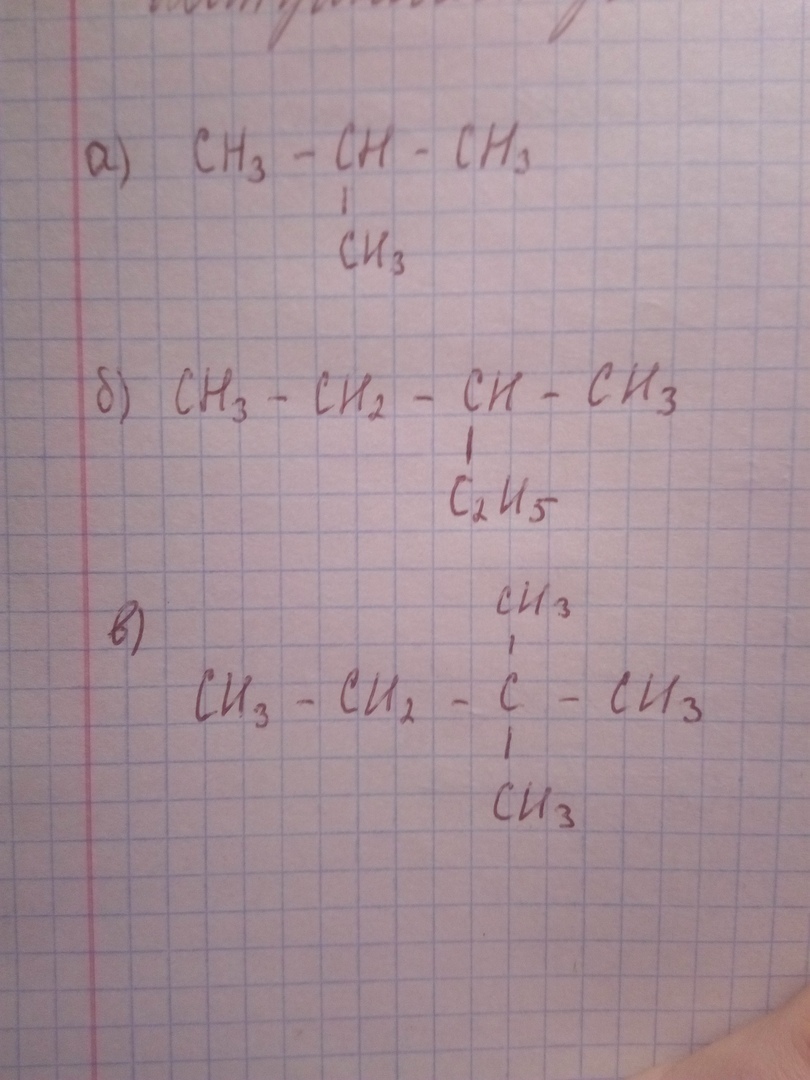 а) CH3 - CH - CH3
|
CH3
б) CH3 - CH2 - CH - CH3
|
C2H5
в)
CH3
|
CH3 - CH2 - C - CH3
|
CH3